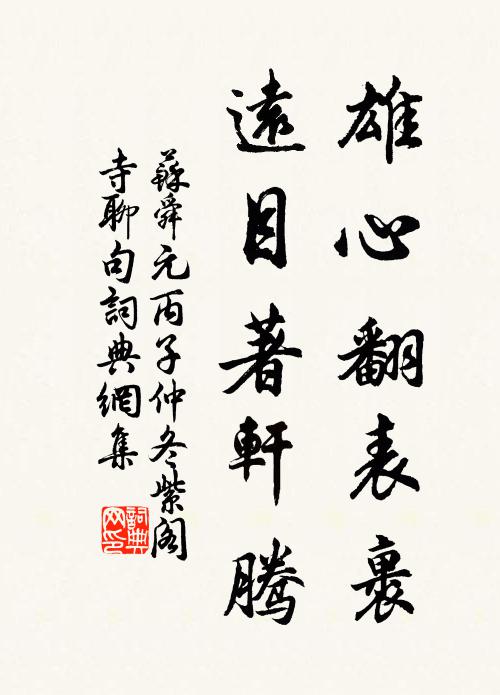 雄心翻表裹
遠目著軒騰
蘇舜元丙子仲冬紫阁
寺聊句詞典網集
詞典网印